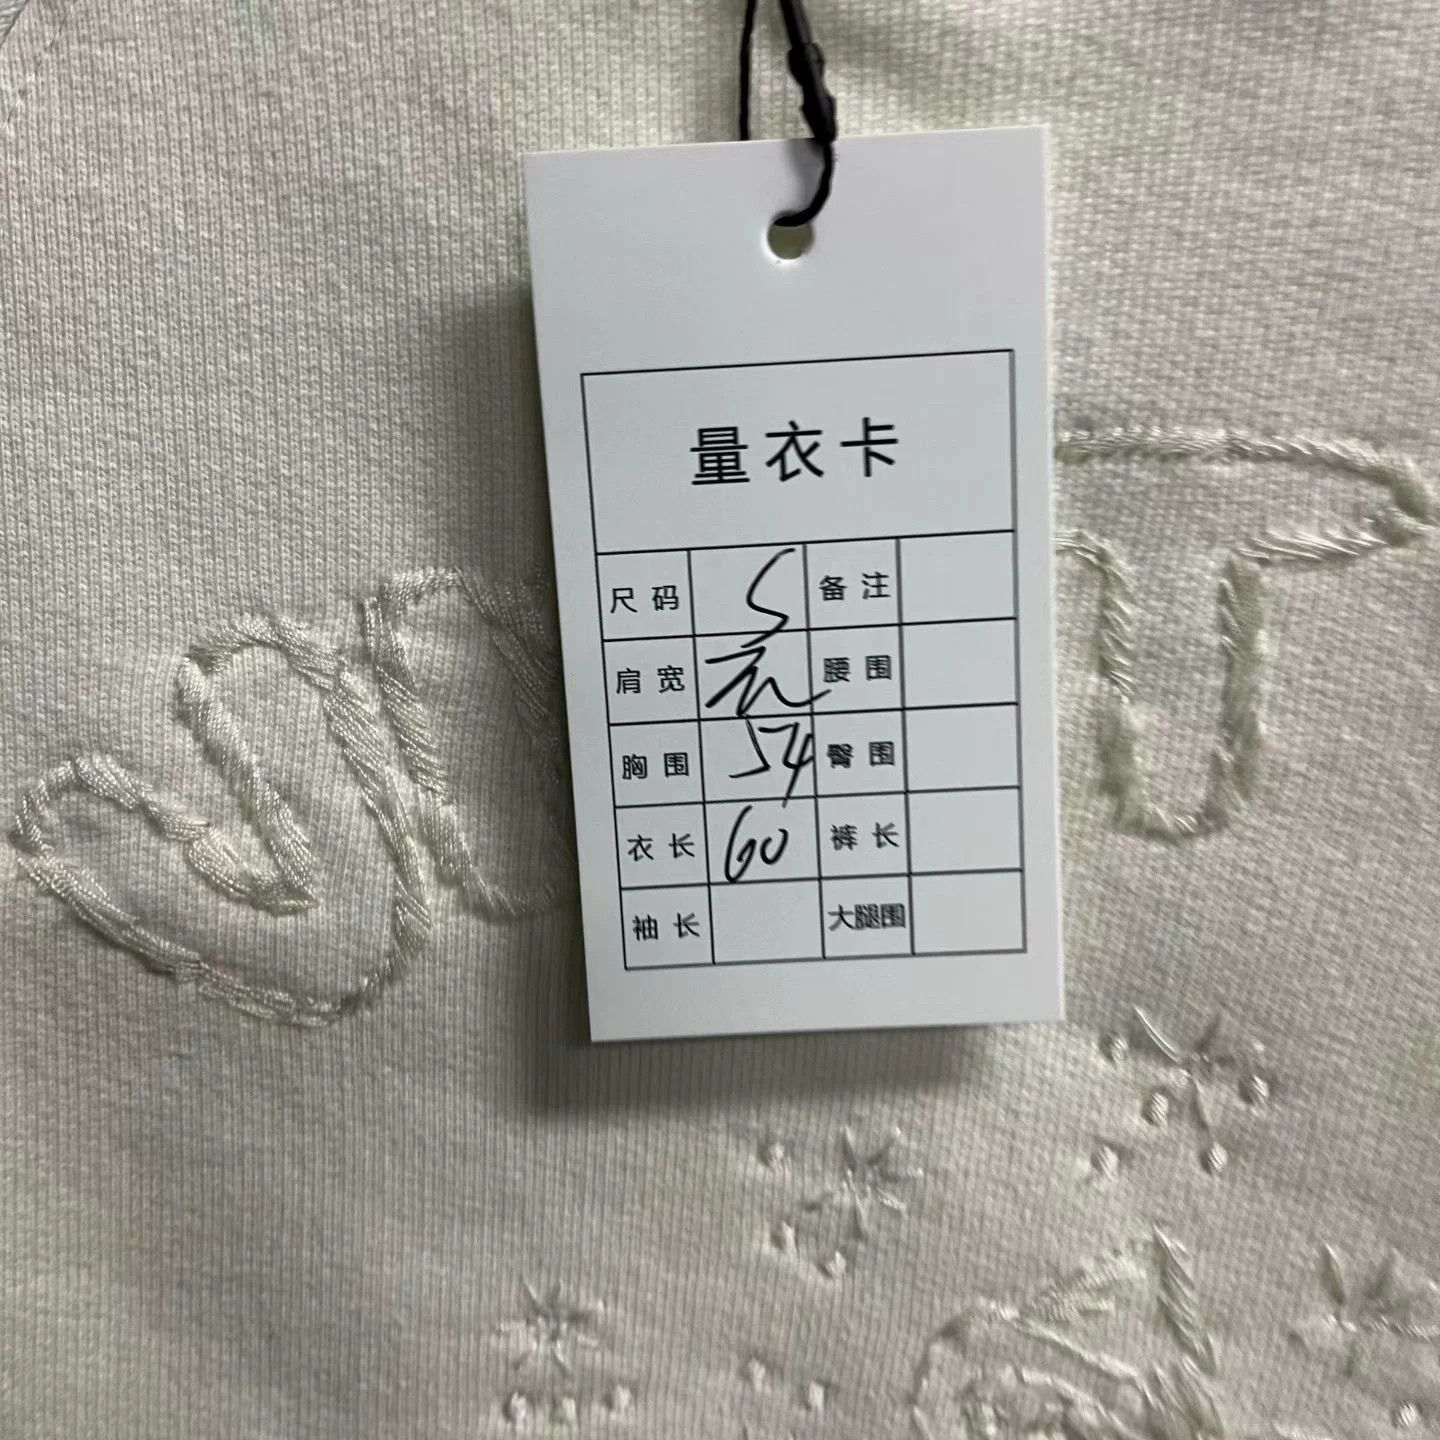 量衣卡
尺码 S 备注
肩宽 腰围
胸围 54 臀围
衣长 60 裤长
袖长 大腿围